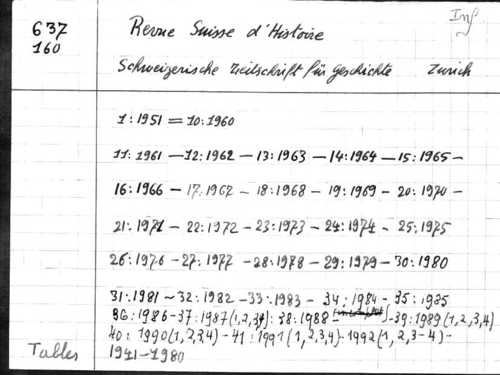 Inf
637
160
Revue Suisse d'Histoire
Schweizerische Zeitschrift für Geschichte Zurich
1:1951 = 10:1960
11:1961 - 12:1962 - 13:1963 - 14:1964 - 15:1965 -
16:1966 - 17:1967 - 18:1968 - 19:1969 - 20:1970 -
21:1971 - 22:1972 - 23:1973 - 24:1974 - 25:1975
26:1976 - 27:1977 - 28:1978 - 29:1979 - 30:1980
31:1981 - 32:1982 - 33:1983 - 34:1984 - 35:1985
36:1986 - 37:1987 (1,2,3,4) 38:1988 - - 39:1989 (1,2,3,4)
40: 1990 (1,2,3,4) - 41:1991 (1,2,3,4) - 1992 (1,2,3-4) -
Tables
1941-1980